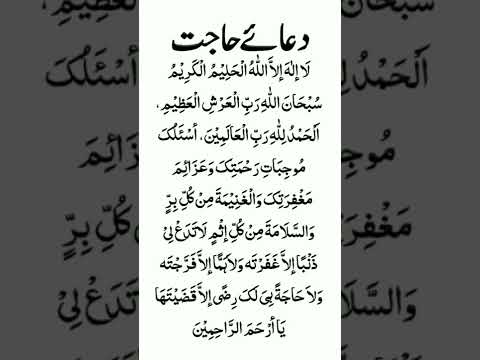 دعائے حاجت
لَا إِلٰهَ إِلَّا اللّٰهُ الْحَلِيْمُ الْكَرِيْمُ
سُبْحَانَ اللّٰهِ رَبِّ الْعَرْشِ الْعَظِيْمِ،
اَلْحَمْدُ لِلّٰهِ رَبِّ الْعَالَمِيْنَ، أَسْئَلُکَ
مُوجِبَاتِ رَحْمَتِکَ وَعَزَائِمَ
مَغْفِرَتِکَ وَالْغَنِيْمَةَ مِنْ كُلِّ بِرٍّ
وَالسَّلَامَةَ مِنْ كُلِّ إِثْمٍ لَا تَدَعْ لِيْ
ذَنْبًا إِلَّا غَفَرْتَه وَلَا هَمًّا إِلَّا فَرَّجْتَه
وَلَا حَاجَةً هِىَ لَکَ رِضًى إِلَّا قَضَيْتَهَا
يَا أَرْحَمَ الرَّاحِمِيْنَ